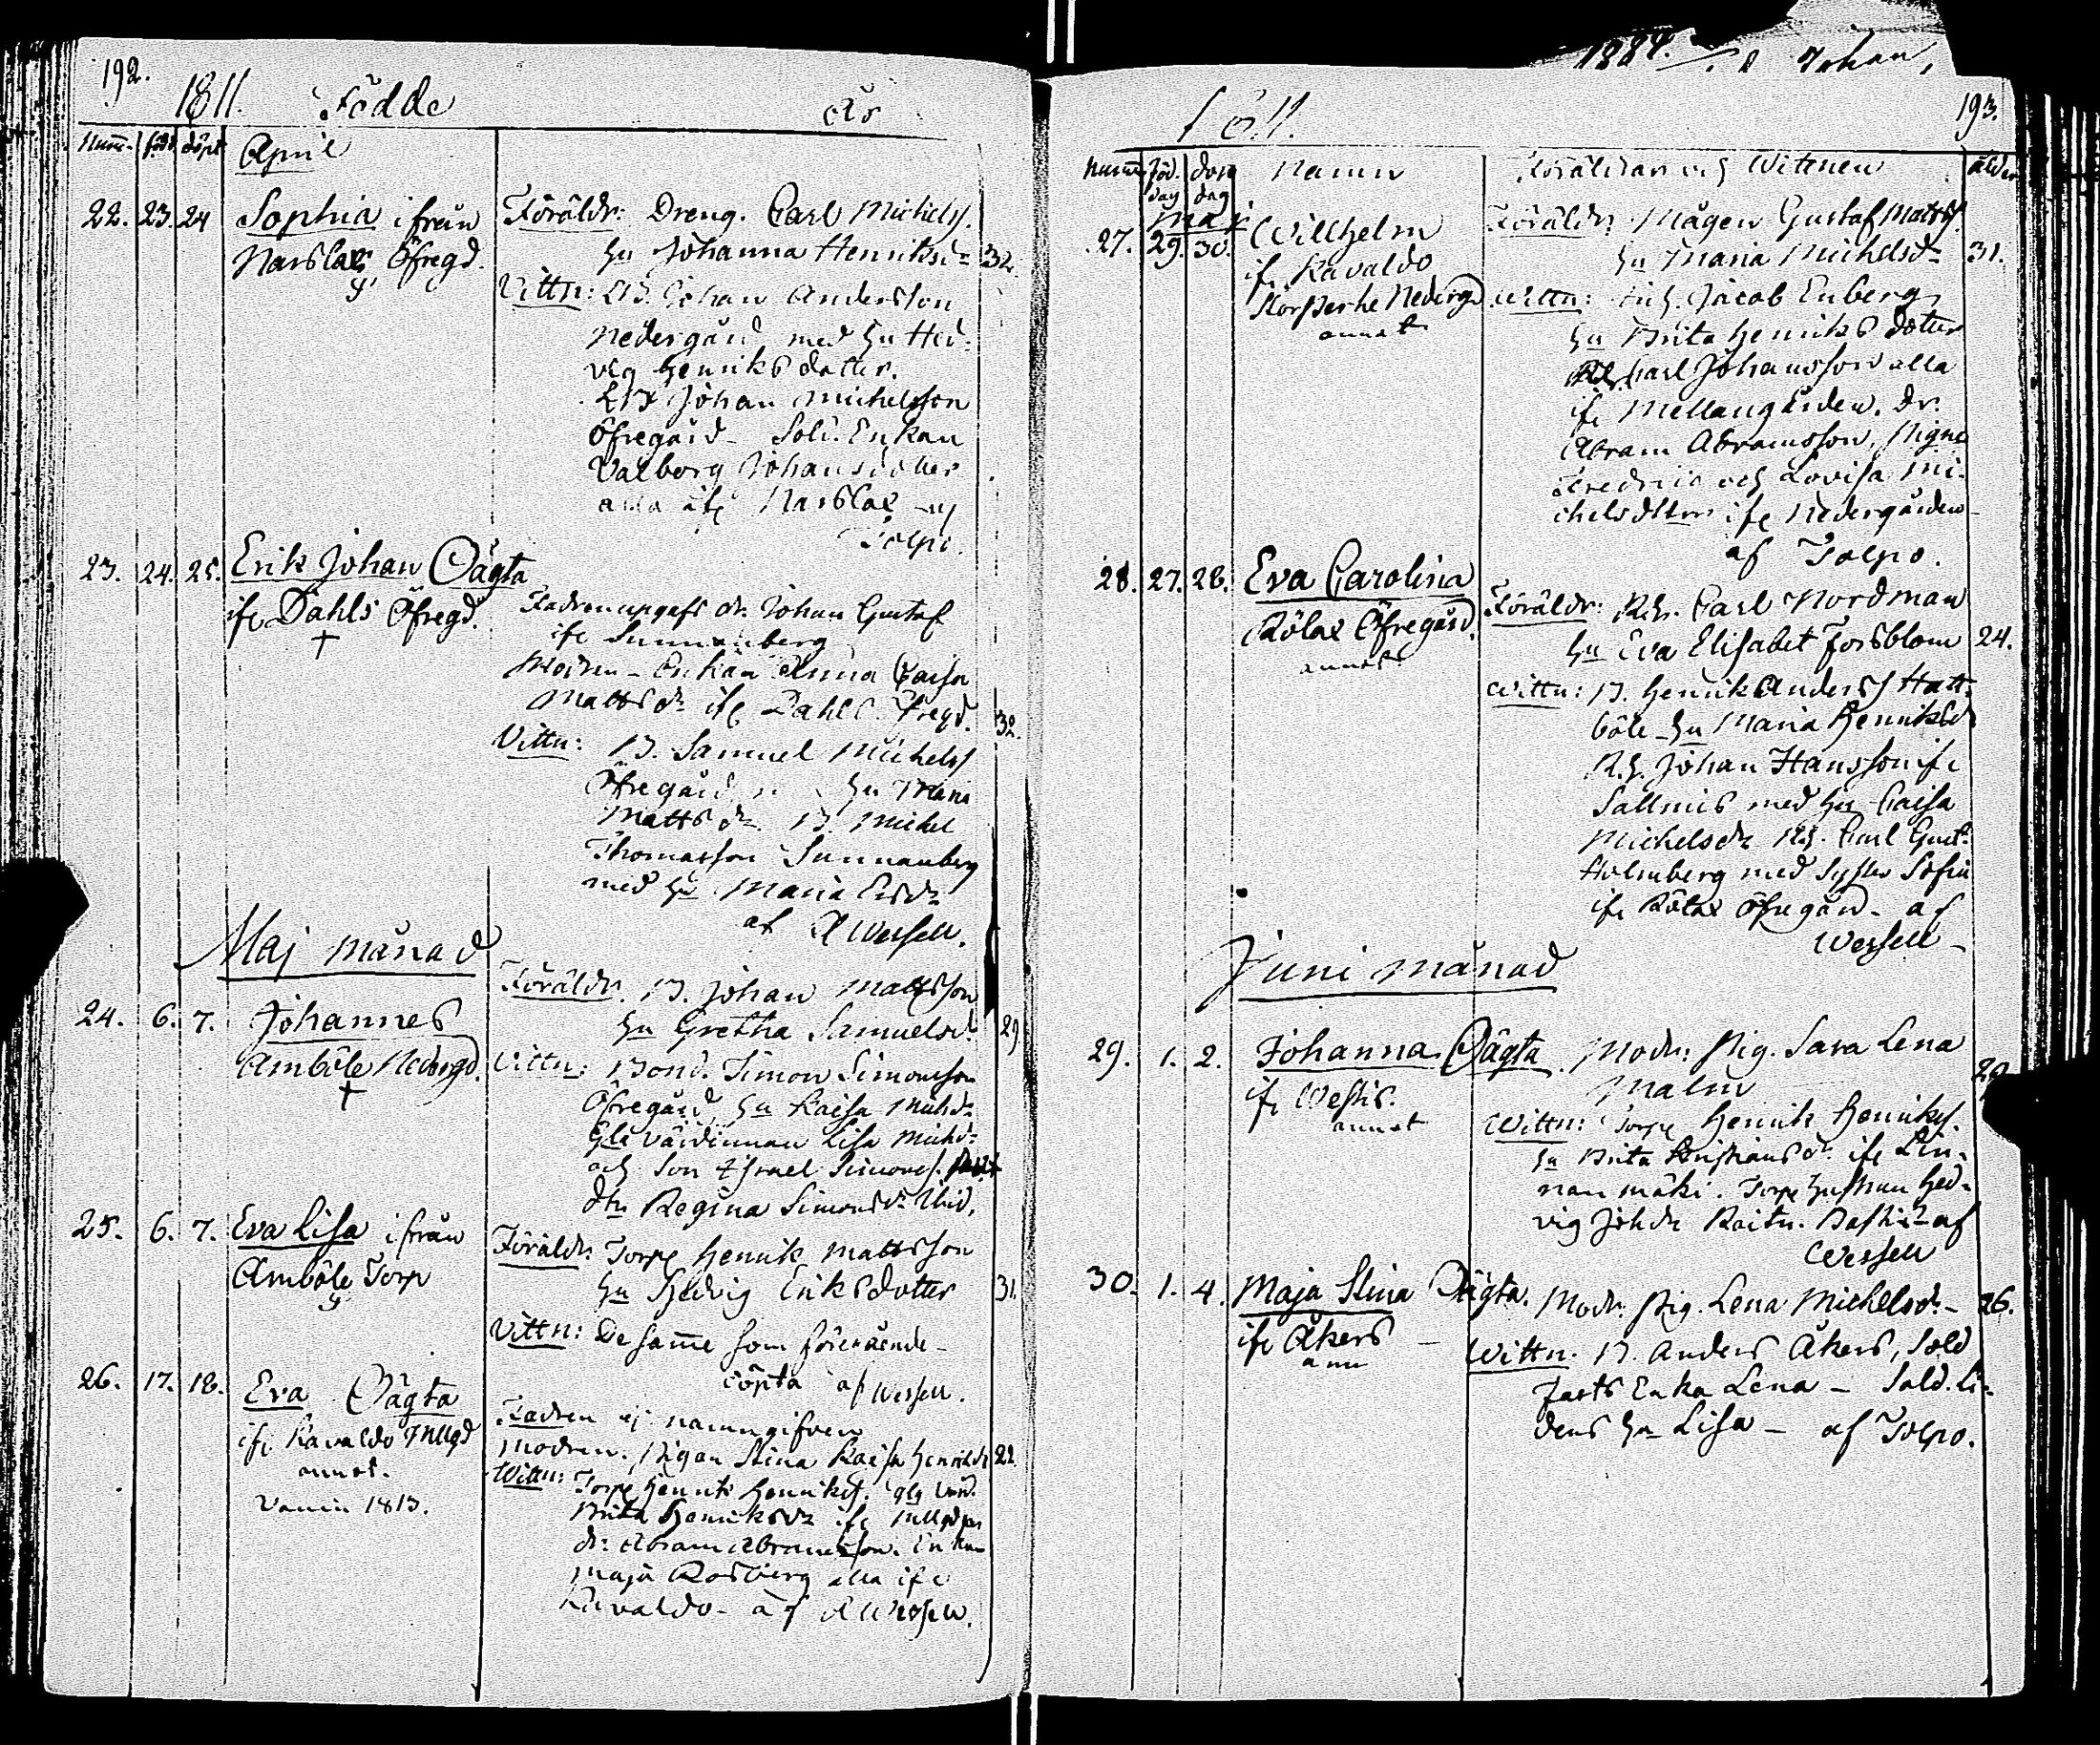 192.
1811. Födde År
Num̄. född. döpt. April
22. 23. 24 Sophia ifrån
Narslax Öfregd.
Föräldr: Dreng. Carl Michelss.
hu Johanna Henriksd: 32.
Vittn: Johan Andersson
Nedergård med hu Hed-
vig Henriks dotter.
Johan Michelsson
Öfregård - Sold. Enkan
Valborg Johansdotter
alla ifr Narslax - af
Tolpo.
23. 24. 25. Erik Johan Oägta
ifr Dahls Öfregd.
Fadren upgafs dr. Johan Gustaf
ifr Sunnanberg
Modren - Enkan Anna Caisa
Mattsdr ifr Dahls Öfregd. 32.
Vittn: B. Samuel Michelss
Öfregård hu Maria
Mattsdr B. Michel
Thomasson Sunnanberg
med hu Maria Ersdr
af A Wessell.
Maj månad
24. 6. 7. Johannes
Amböle Nedergd.
Föräldr. B. Johan Mattsson
hu Gretha Samuelsd. 29
Vittn: Bond. Simon Simonsson
Öfregård, hu Kaisa Michsdr
Gla värdinnan Lisa Michsdr
och Son Israel Simonss.
dtr Regina Simonsdr ibid.
25. 6. 7. Eva Lisa ifrån
Amböle Torp
Föräldr. Torp Henrik Mattsson
hu Hedvig Eriksdotter 31.
Vittn: De sam̄e som föregående -
döpta af Wessell.
26. 17. 18. Eva Oägta
ifr Kavaldo Mllgd
annot.
1813.
Fadren ej namngifven
Modren. Pigan Stina Kaisa Henriksdr 22.
Wittn: Torp Henrik Henrikss. gla värd.
Brita Henriksdr ifr Mllgden
dr. Abram Abramsson. Enkan
Maja Rosberg alla ifr
Kavaldo - af A Wessell.
1884. Johan,
193.
1811.
Num̄ Föd. dag dop dag Namn Föräldrar och Wittnen ålder
Maj
27. 29. 30. Willhelm
ifr Kavaldo
Nedergd
annot
Föräldr: Mågen Gustaf Mattss.
hu Maria Michelsd: 31.
Wittn: Jacob Enberg
hu Brita Henriks dotter
Carl Johansson alla
ifr Mellangården. Dr.
Abram Abramsson, Pigne
Fredric och Lovisa Mi-
chelsdttrar ifr Nedergården
af Tolpo.
28. 27. 28. Eva Carolina
Rölax Öfregård.
annot
Föräldr: Rh. Carl Nordman
hu Eva Elisabet Forsblom 24.
Wittn: B. Henrik Anderss Hatt-
böle hu Maria Henriksd
Rh. Johan Hansson ifr
Sallmis med hu Caisa
Michelsdr Rh. Carl Gust.
Holmberg med syster Sofia
ifr Rölax Öfregård - af
Wessell -
Juni månad
29. 1. 2. Johanna Oägta
ifr Westis.
annot
Modr: Pig. Sara Lena
Malm 29
Wittn: Torp Henrik Henrikss.
hu Brita Kristiansdr ifr Lin-
nanmäki. Torp hustrun Hed-
vig Johdr af
Wessell
30. 1. 4. Maja Stina Oägta.
ifr Åkers -
ann
Modr. Pig. Lena Michelsdr - 26.
Wittn. B. Anders Åkers, Sold
Fasts Enka Lena - Sold. Li-
dens hu Lisa - af Tolpo.